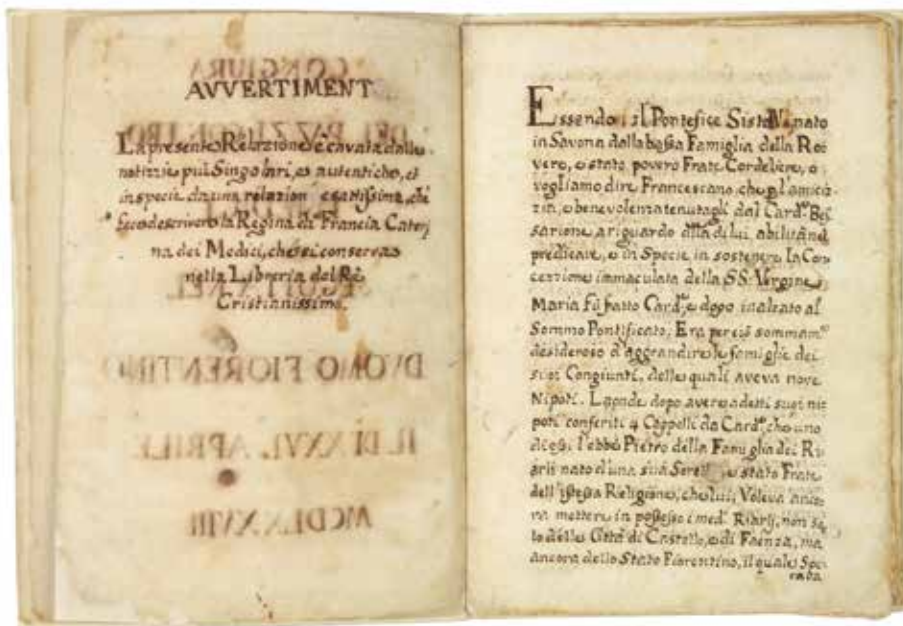 AVVERTIMENT
La presente Relazione è cavata dalle
notizzie più Singolari, et autentiche, et
in specie da una relazion esattissima, che
fece descrivere la Regina di Francia Cateri
na dei Medici, che si conserva
nella Libreria del Rè
Cristianissimo.
CONGIURA
DEI PAZZI CONTRO
DVOMO FIORENTINO
IL DI XXVI. APRILE
MCDLXXVIII
Essendo il Pontefice Sisto IV nato
in Savona dalla bassa Famiglia della Ro
vere, e stato povero Frate Cordeliere, o
vogliamo dire Francescano, che p l'amici
zia, e benevolenza tenutagli dal Card.^e Bes
sarione, a riguardo della di lui abilità nel
predicare, e in Specie in sostenere la Con
cezzione immaculata della SS. Vergine
Maria fù fatto Card.^e, e dopo inalzato al
Sommo Pontificato; Era perciò sommam.^e
desideroso d'aggrandire le famiglie dei
suoi Congiunti, delle quali aveva nove
Nipoti. Laonde dopo avere a detti suoi ni
poti conferiti 4 Cappelli da Card.^e, che uno
di essi l'ebbe Pietro della Famiglia dei Ri
arii nato d'una sua Sorella, e stato Frate
dell'istessa Religione, che lui, Voleva anco
ra mettere in possesso i med.^i Riarii, non so
lo delle Città di Castello, e di Faenza, ma
ancora dello Stato Fiorentino, il quale Spe
raba